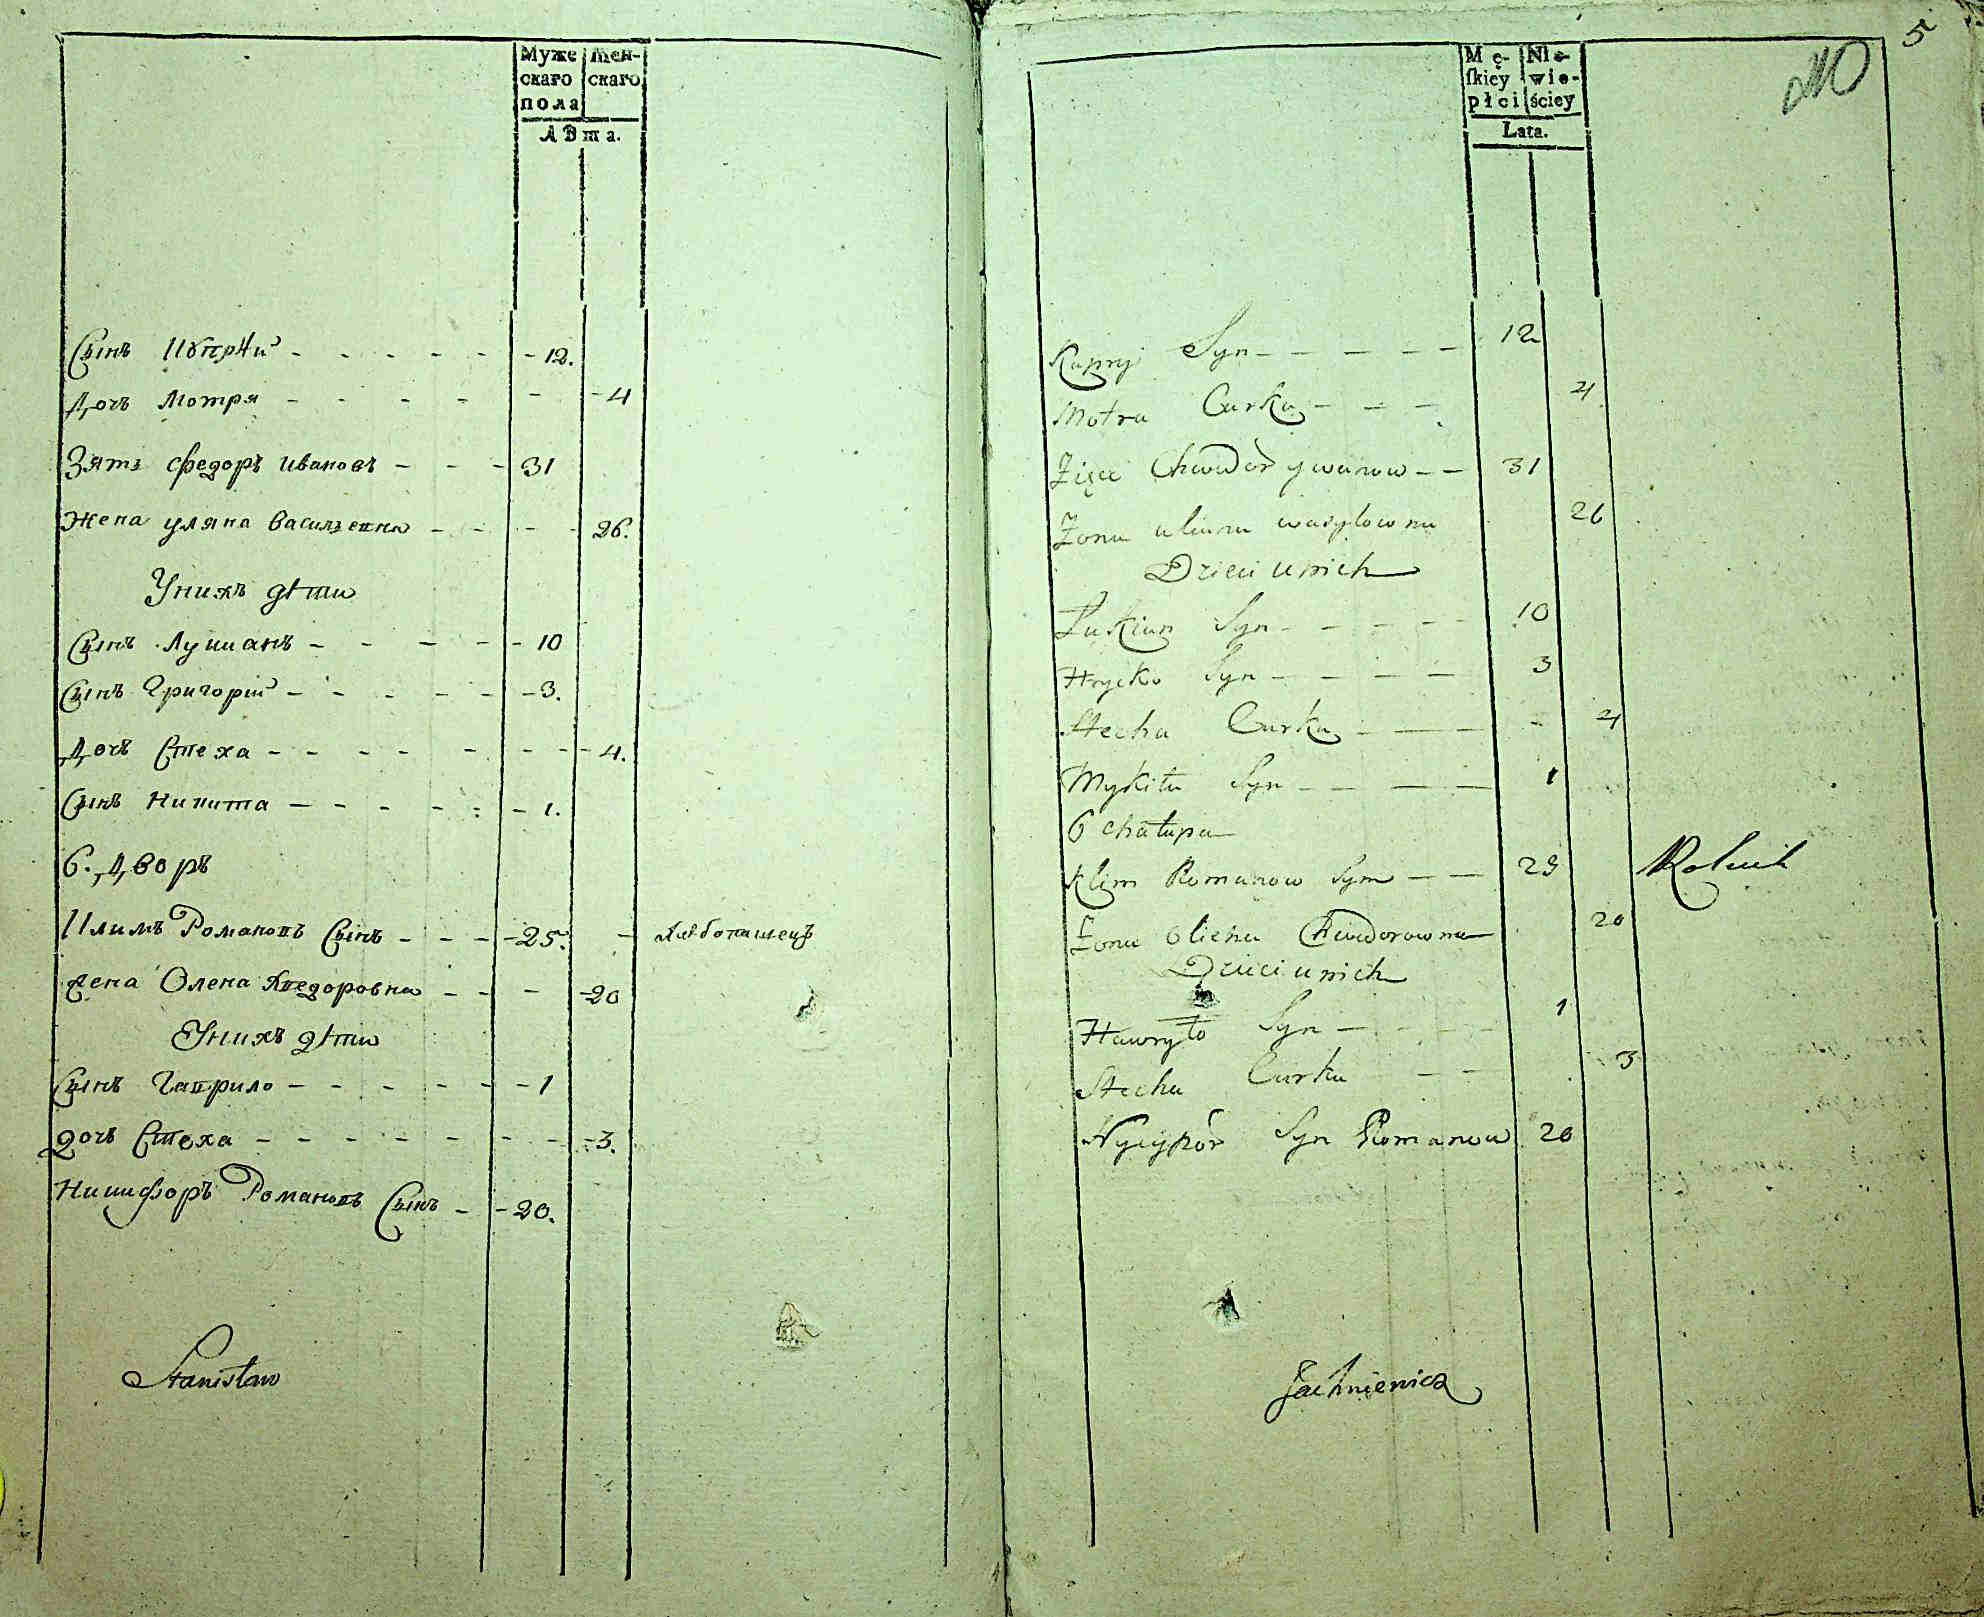 Муже
скаго
пола
Жен-
скаго
Лѣта.
Сынъ Купрѣй - - - - - 12.
Дочь Мотря - - - - - 4
Зять Федоръ Ивановъ - - - 31
Жена Уляна Васильевна - - - - 26.
У нихъ дѣти
Сынъ Лукианъ - - - - 10
Сынъ Григорій - - - - - 3.
Дочь Стеха - - - - - - - 4.
Сынъ Никита - - - - - 1.
6. Дворъ
Климъ Романовъ Сынъ - - - 25. - хлѣбопашецъ
Жена Олена Хведоровна - - - 20
У нихъ дѣти
Сынъ Гаврило - - - - - - 1
Дочь Стеха - - - - - - - - 3.
Никифоръ Романовъ Сынъ - - 20.
Stanisław
5
Mę-
skiey
płci
Nie-
wie-
ściey
Lata.
Kupryj Syn - - - - - 12
Motra Curka - - - 4
Zięć Chwedor Jwanow - - 31
Żona uliana wasylowna 26
Dzieci u nich
Łukian Syn - - - - - 10
Hrycko Syn - - - - 3
Stecha Curka - - - - 4
Mykita Syn - - - - 1
6 chałupa
Klim Romanow Syn - - 25 Rolnik
Żona Oliena Chwedorowna 20
Dzieci u nich
Hawryło Syn - - - - 1
Stecha Curka - - 3
Nyczypór Syn Romanow 20
Jachniewicz